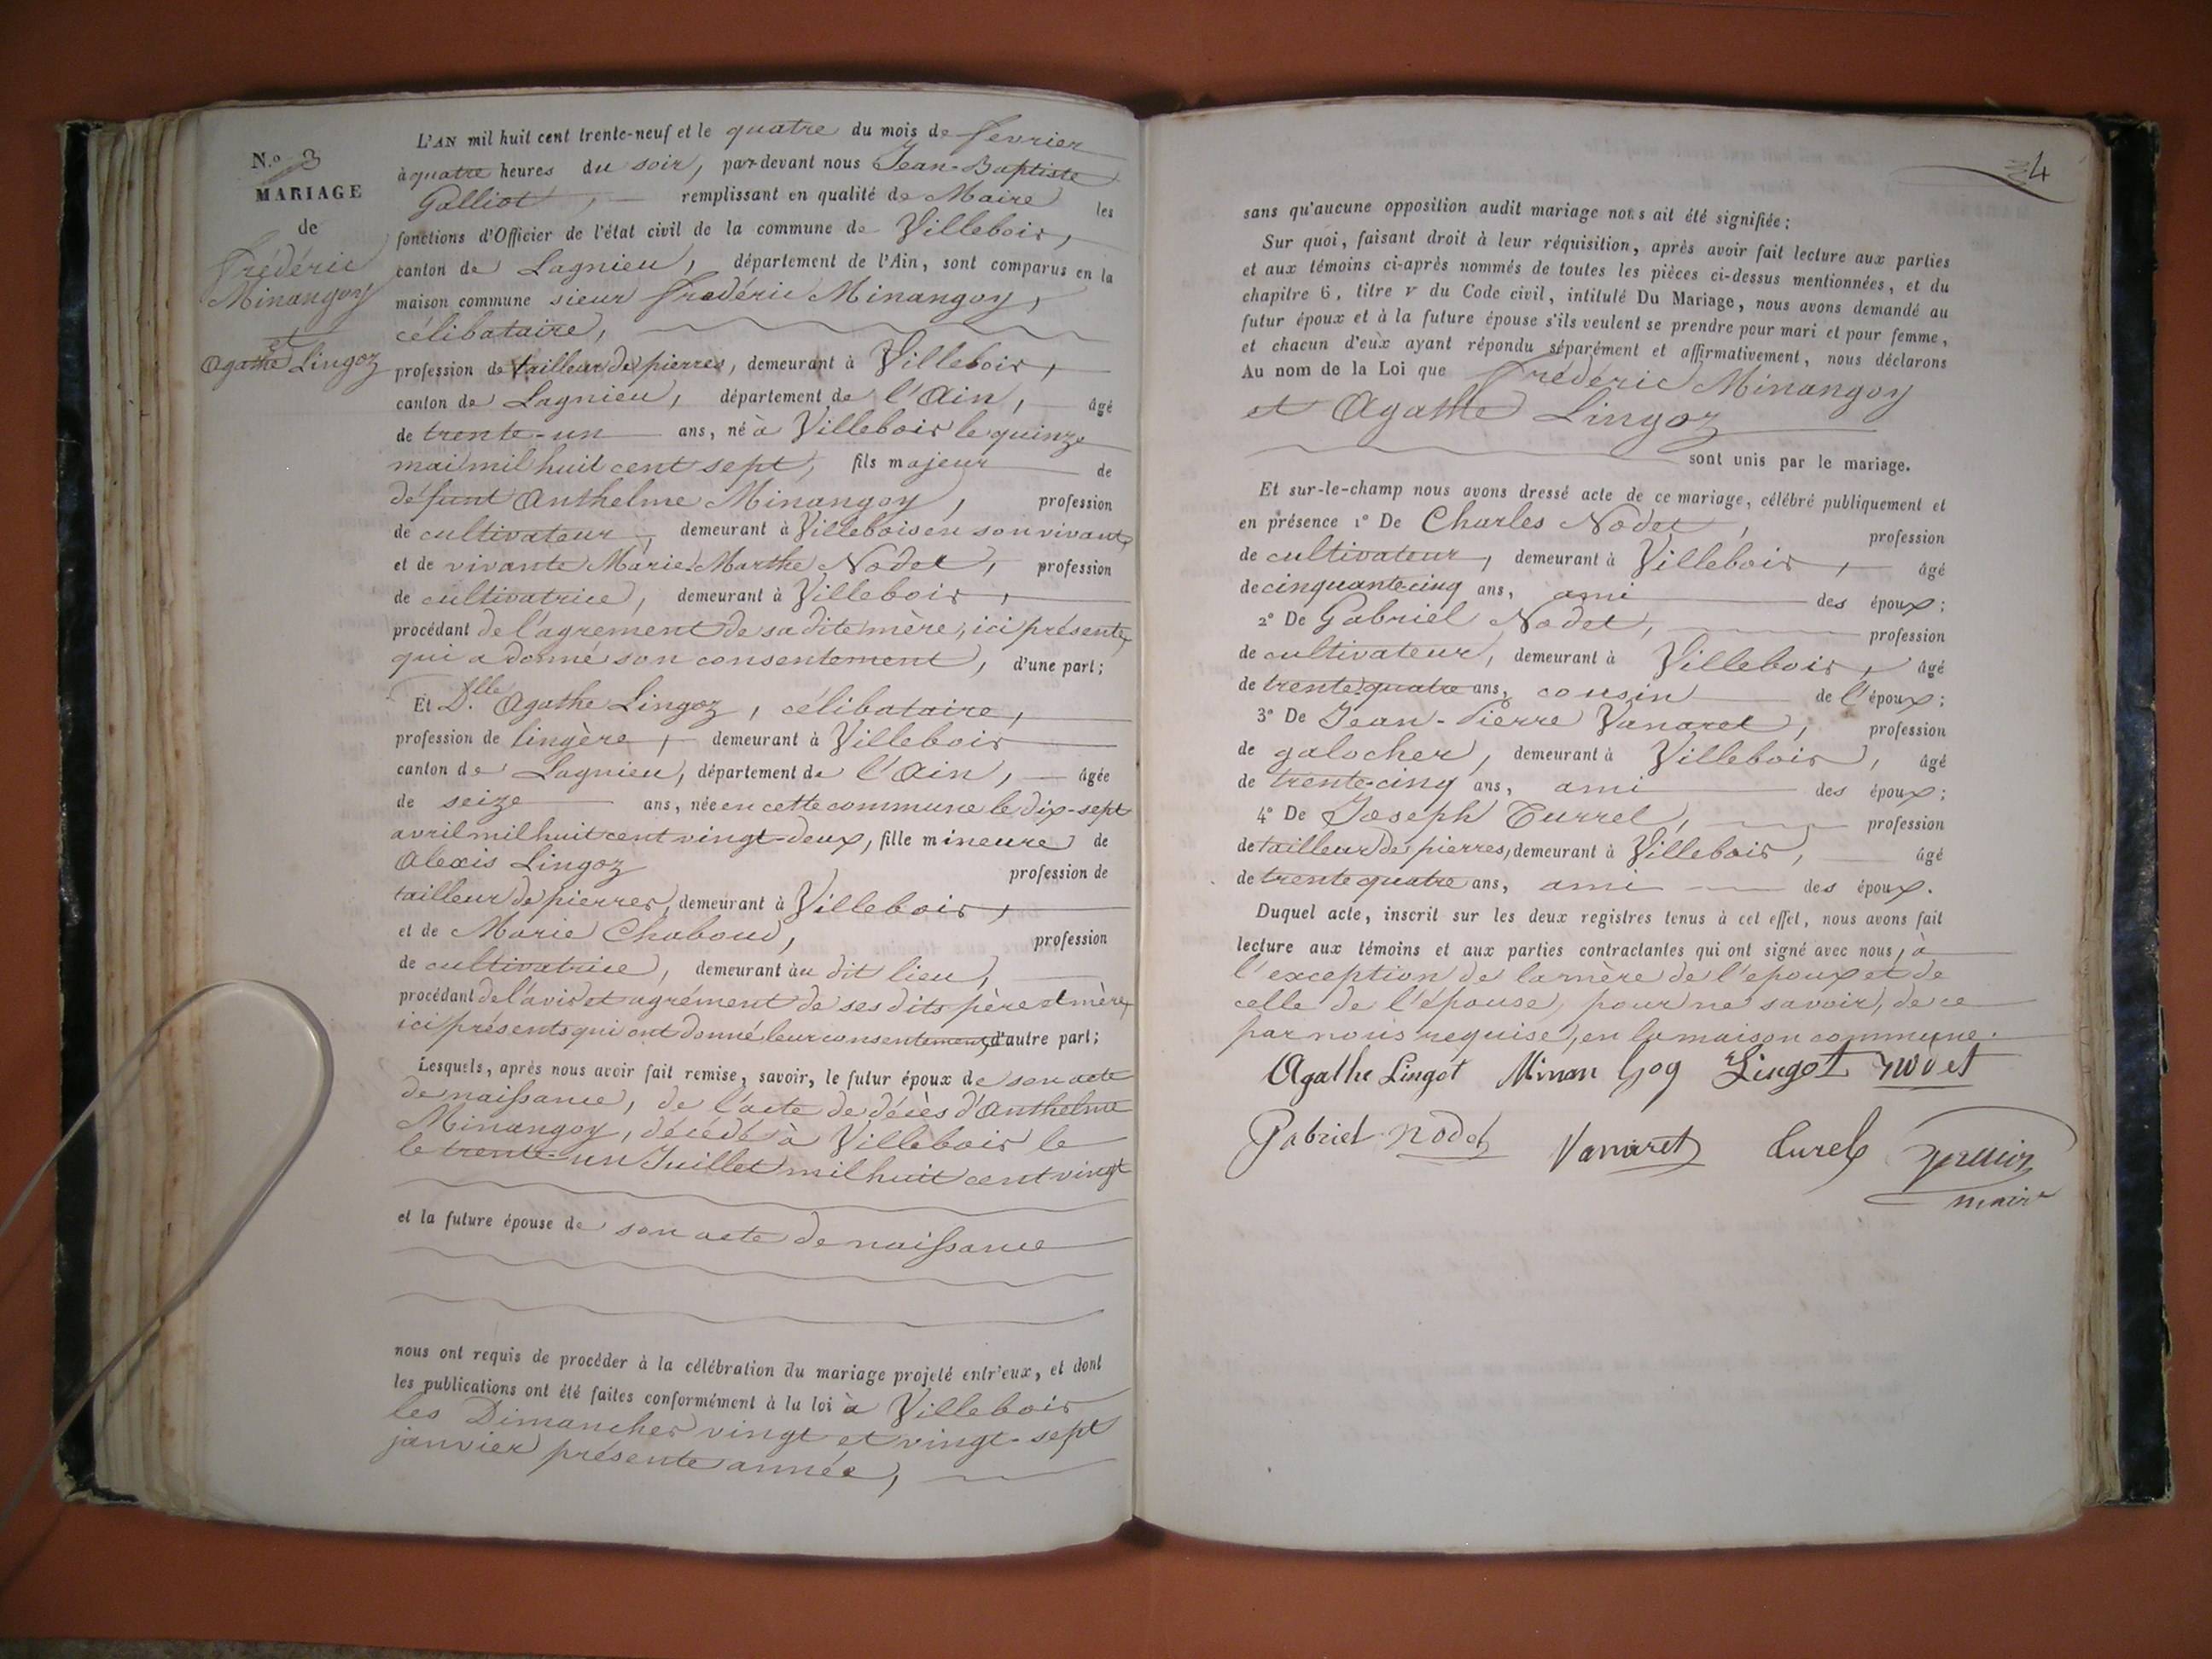 N.º 3
MARIAGE
de
Frédéric
Minangoy
et
Agathe Lingoz
L'AN mil huit cent trente-neuf et le quatre du mois de fevrier
à quatre heures du soir, par-devant nous Jean-Baptiste
Galliot, remplissant en qualité de Maire les
fonctions d'Officier de l'état civil de la commune de Villebois,
canton de Lagnieu, département de l'Ain, sont comparus en la
maison commune sieur fredéric Minangoy,
célibataire,
profession de tailleur de pierres, demeurant à Villebois,
canton de Lagnieu, département de l'Ain, âgé
de trente-un ans, né à Villebois le quinze
mai mil huit cent sept, fils majeur de
défunt Anthelme Minangoy, profession
de cultivateur, demeurant à Villebois en son vivant,
et de vivante Marie-Marthe Nodet, profession
de cultivatrice, demeurant à Villebois,
procédant de l'agrement de sa dite mère, ici présente,
qui a donné son consentement, d'une part;
Et D.lle Agathe Lingoz, célibataire,
profession de lingère, demeurant à Villebois
canton de Lagnieu, département de l'Ain, âgée
de seize ans, née en cette commune le dix-sept
avril mil huit cent vingt-deux, fille mineure de
Alexis Lingoz profession de
tailleur de pierres, demeurant à Villebois,
et de Marie Chaboud, profession
de cultivatrice, demeurant au dit lieu,
procédant de l'avis et agrément de ses dits père et mère,
ici présents qui ont donné leur consentement, d'autre part;
Lesquels, après nous avoir fait remise, savoir, le futur époux de son acte
de naissance, de l'acte de décès d'Anthelme
Minangoy, décédé à Villebois le
le trente-un Juillet mil huit cent vingt
et la future épouse de son acte de naissance
nous ont requis de procéder à la célébration du mariage projeté entr'eux, et dont
les publications ont été faites conformément à la loi à Villebois
les Dimanches vingt et vingt-sept
janvier présente année,
4
sans qu'aucune opposition audit mariage nous ait été signifiée;
Sur quoi, faisant droit à leur réquisition, après avoir fait lecture aux parties
et aux témoins ci-après nommés de toutes les pièces ci-dessus mentionnées, et du
chapitre 6, titre v du Code civil, intitulé Du Mariage, nous avons demandé au
futur époux et à la future épouse s'ils veulent se prendre pour mari et pour femme,
et chacun d'eux ayant répondu séparément et affirmativement, nous déclarons
Au nom de la Loi que Frédéric Minangoy
et Agathe Lingoz
sont unis par le mariage.
Et sur-le-champ nous avons dressé acte de ce mariage, célébré publiquement et
en présence 1º De Charles Nodet, profession
de cultivateur, demeurant à Villebois, âgé
de cinquante cinq ans, ami des époux;
2º De Gabriel Nodet, profession
de cultivateur, demeurant à Villebois, âgé
de trente-quatre ans, cousin de l'époux;
3º De Jean-Pierre Vanaret, profession
de galocher, demeurant à Villebois, âgé
de trente-cinq ans, ami des époux;
4º De Joseph Turrel, profession
de tailleur de pierres, demeurant à Villebois, âgé
de trente quatre ans, ami des époux.
Duquel acte, inscrit sur les deux registres tenus à cet effet, nous avons fait
lecture aux témoins et aux parties contractantes qui ont signé avec nous, à
l'exception de la mère de l'epoux et de
celle de l'épouse, pour ne savoir, de ce
par nous requise, en la maison commune.
Agathe Lingot Minan Goy Lingot
Gabriel Nodet Vanaret Turel
maire